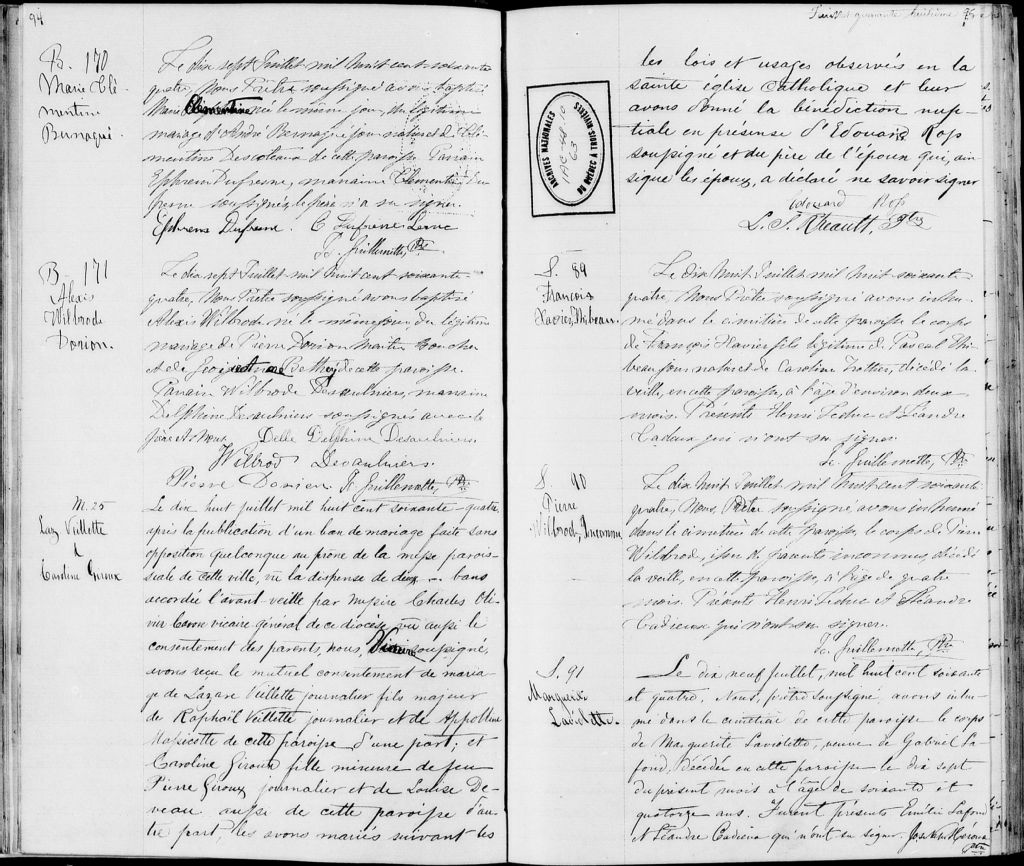 94
B. 170
Marie Clé-
mentine
Bernaqué
Le dix sept Juillet mil huit cent soixante
quatre, Nous Prêtre soussigné avons baptisé
Marie Clémentine née le même jour, du légitime
mariage d'André Journalier et de Clé-
mentine Descoteaux de cette paroisse. Parrain
Ephrem Dufresne, marraine Clémentine Du
fresne soussignés, le père n'a su signer.
Ephrem Dufresne. C Dufresne
J. Guillemette, Ptre
B. 171
Alexis
Wilbrode
Dorion.
Le dix sept Juillet mil huit cent soixante
quatre, Nous Prêtre soussigné avons baptisé
Alexis Wilbrode né le même jour du légitime
mariage de Pierre Dorion Maître Boucher
et de de cette paroisse.
Parrain Wilbrode Desaulniers, marraine
Delphine Desaulniers soussignés avec le
père et Nous. Delle Delphine Desaulniers
Wilbrod Desaulniers.
Pierre Dorion J. Guillemette, Ptre
M. 25
Laz Veillette
&
Caroline Giroux
Le dix huit juillet mil huit cent soixante-quatre,
après la publication d'un ban de mariage faite sans
opposition quelconque au prône de la messe parois-
siale de cette ville, vu la dispense de deux bans
accordée l'avant-veille par Messire Charles Oli-
vier Caron vicaire général de ce diocèse, vu aussi le
consentement des parents, nous, Vicaire soussigné,
avons reçu le mutuel consentement de maria-
ge de Lazare Veillette journalier fils majeur
de Raphaël Veillette journalier et de Appolline
Massicotte de cette paroisse d'une part; et
Caroline Giroux fille mineure de feu
Pierre Giroux journalier et de Louise De-
veau aussi de cette paroisse d'au-
tre part, les avons mariés suivant les
Feuillet quarante huitième 95
les lois et usages observés en la
sainte église Catholique et leur
avons donné la bénédiction nup-
tiale en présense d'Edouard Rop
soussigné et du père de l'époux qui, ain
sique les époux, a déclaré ne savoir signer
edouard Rop
L. S. Rheault, Ptre
ARCHIVES NATIONALES
DU QUÉBEC À TROIS-RIVIÈRES
63
S. 89
François
Xavier Thibeau
Le dix huit Juillet mil huit soixante
quatre, Nous Prêtre soussigné avons inhu-
mé dans le cimetière de cette paroisse le corps
de François Xavier fils légitime de Pascal Thi-
beau journalier et de Caroline Trottier, décédé la
veille, en cette paroisse, à l'âge d'environ deux
mois. Présents Henri Leduc et Léandre
Cadieux qui n'ont su signer.
J. Guillemette, Ptre
S. 90
Pierre
Wilbrod, Inconnu
Le dix huit Juillet mil huit cent soixante
quatre, Nous Prêtre soussigné avons inhumé
dans le cimetière de cette paroisse, le corps de Pierre
Wilbrod, issu de parents inconnus, décédé
la veille, en cette paroisse, à l'âge de quatre
mois. Présents Henri Leduc et Léandre
Cadieux qui n'ont su signer.
J. Guillemette, Ptre
S. 91
Marguerite
Laviolette.
Le dix neuf juillet, mil huit cent soixante
et quatre, Nous, prêtre soussigné avons inhu-
mé dans le cimetière de cette paroisse le corps
de Marguerite Laviolette, veuve de Gabriel La-
fond, décédée en cette paroisse le dix sept
du présent mois à l'âge de soixante et
quatorze ans. Furent présents Emilie Lafond
et Léandre Cadieux qui n'ont su signer. Joseph
ptre